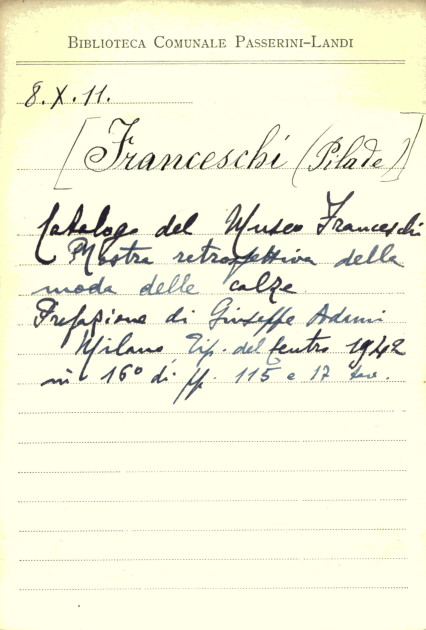 BIBLIOTECA COMUNALE PASSERINI-LANDI
8.X.11.
[Franceschi (Pilade)]
Catalogo del Museo Franceschi
Mostra retrospettiva della
moda delle calze
Prefazione di Giuseppe Adami
Milano, Tip. del Centro 1942
in 16° di pp. 115 e 17 tav.